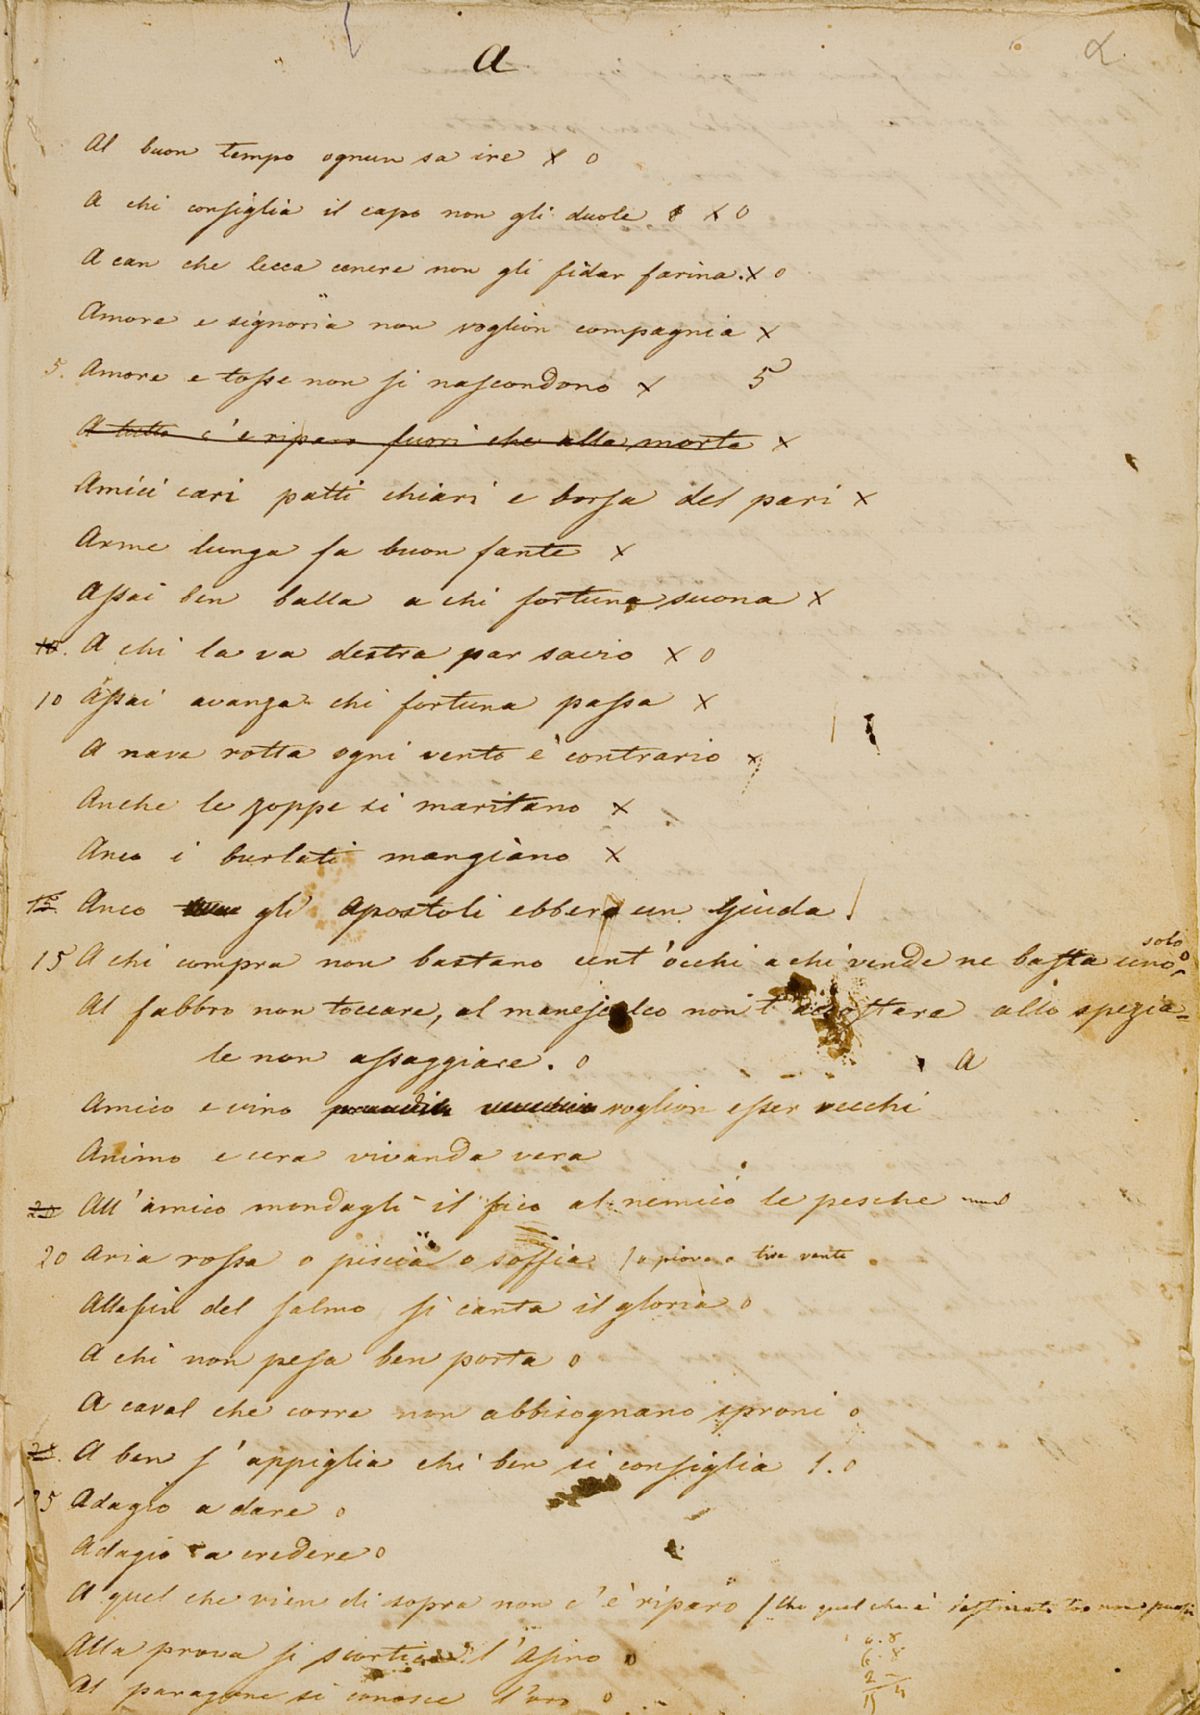 a
Al buon tempo ognun sa ire x o
A chi consiglia il capo non gli duole x o
A can che lecca cenere non gli fidar farina. x o
Amore e signoria non voglion compagnia x
5. Amore e tosse non si nascondono x 5
A tutto c'è riparo fuori che alla morte x
Amici cari patti chiari e borsa del pari x
Arme lunga fa buon fante x
Assai ben balla a chi fortuna suona x
10. A chi la va destra par savio x o
10 Assai avanza chi fortuna passa x
A nave rotta ogni vento è contrario x
Anche le zoppe si maritano x
Anco i burlati mangiano x
Anco gli apostoli ebbero un Giuda
solo
15 A chi compra non bastano cent'occhi a chi vende ne basta uno o
Al fabbro non toccare, al manescalco non t'accostare allo spezia=
le non assaggiare. o a
Amico e vino voglion esser vecchi
Animo e cera vivanda vera
All'amico mondagli il fico al nemico le pesche
20 Aria rossa o piscia o soffia / o piove o tira vento
Alla fin del salmo si canta il gloria o
A chi non pesa ben porta o
A caval che corre non abbisognano sproni o
A ben s'appiglia chi ben si consiglia 1. o
25 Adagio a dare o
Adagio a credere o
A quel che vien di sopra non c'è riparo / Che quel che è
Alla prova si scortica l'asino o
Al paragone si conosce l'oro o